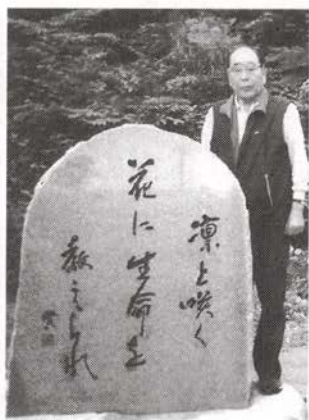 凛と咲く
花に生命を
教えられ